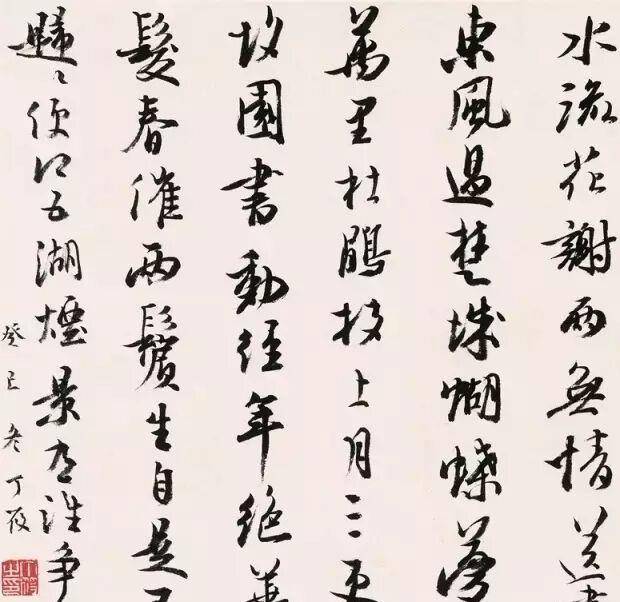 水流花謝兩無情送
東風過楚城蝴蝶夢
萬里杜鵑枝上月三更
故園書動經年絕華
髮春催兩鬢生自是
歸〻便得五湖煙景有誰爭
癸巳冬丁筱